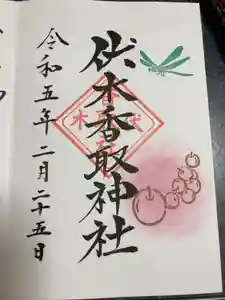 伏木香取神社
令和五年二月二十五日